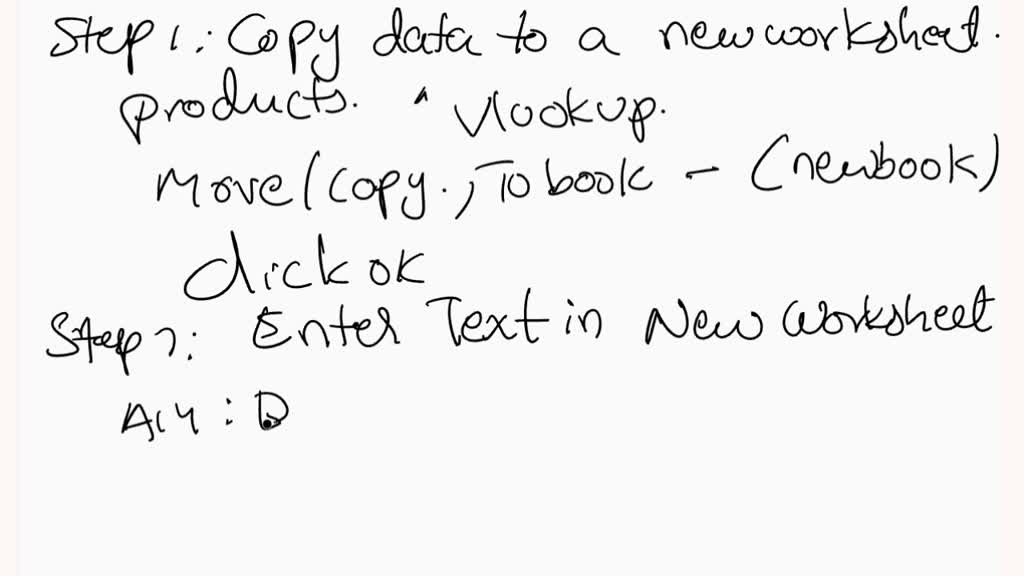 Step 1: Copy data to a new worksheet.
products. ^ Vlookup.
Move/Copy., To book - (newbook)
click ok
Step 2: Enter Text in New Worksheet
A14: D